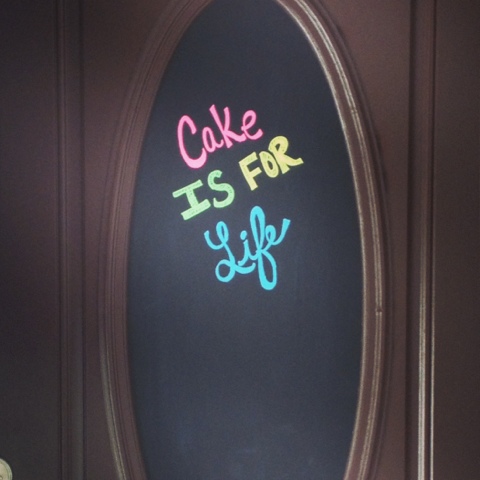 Cake
IS FOR
Life